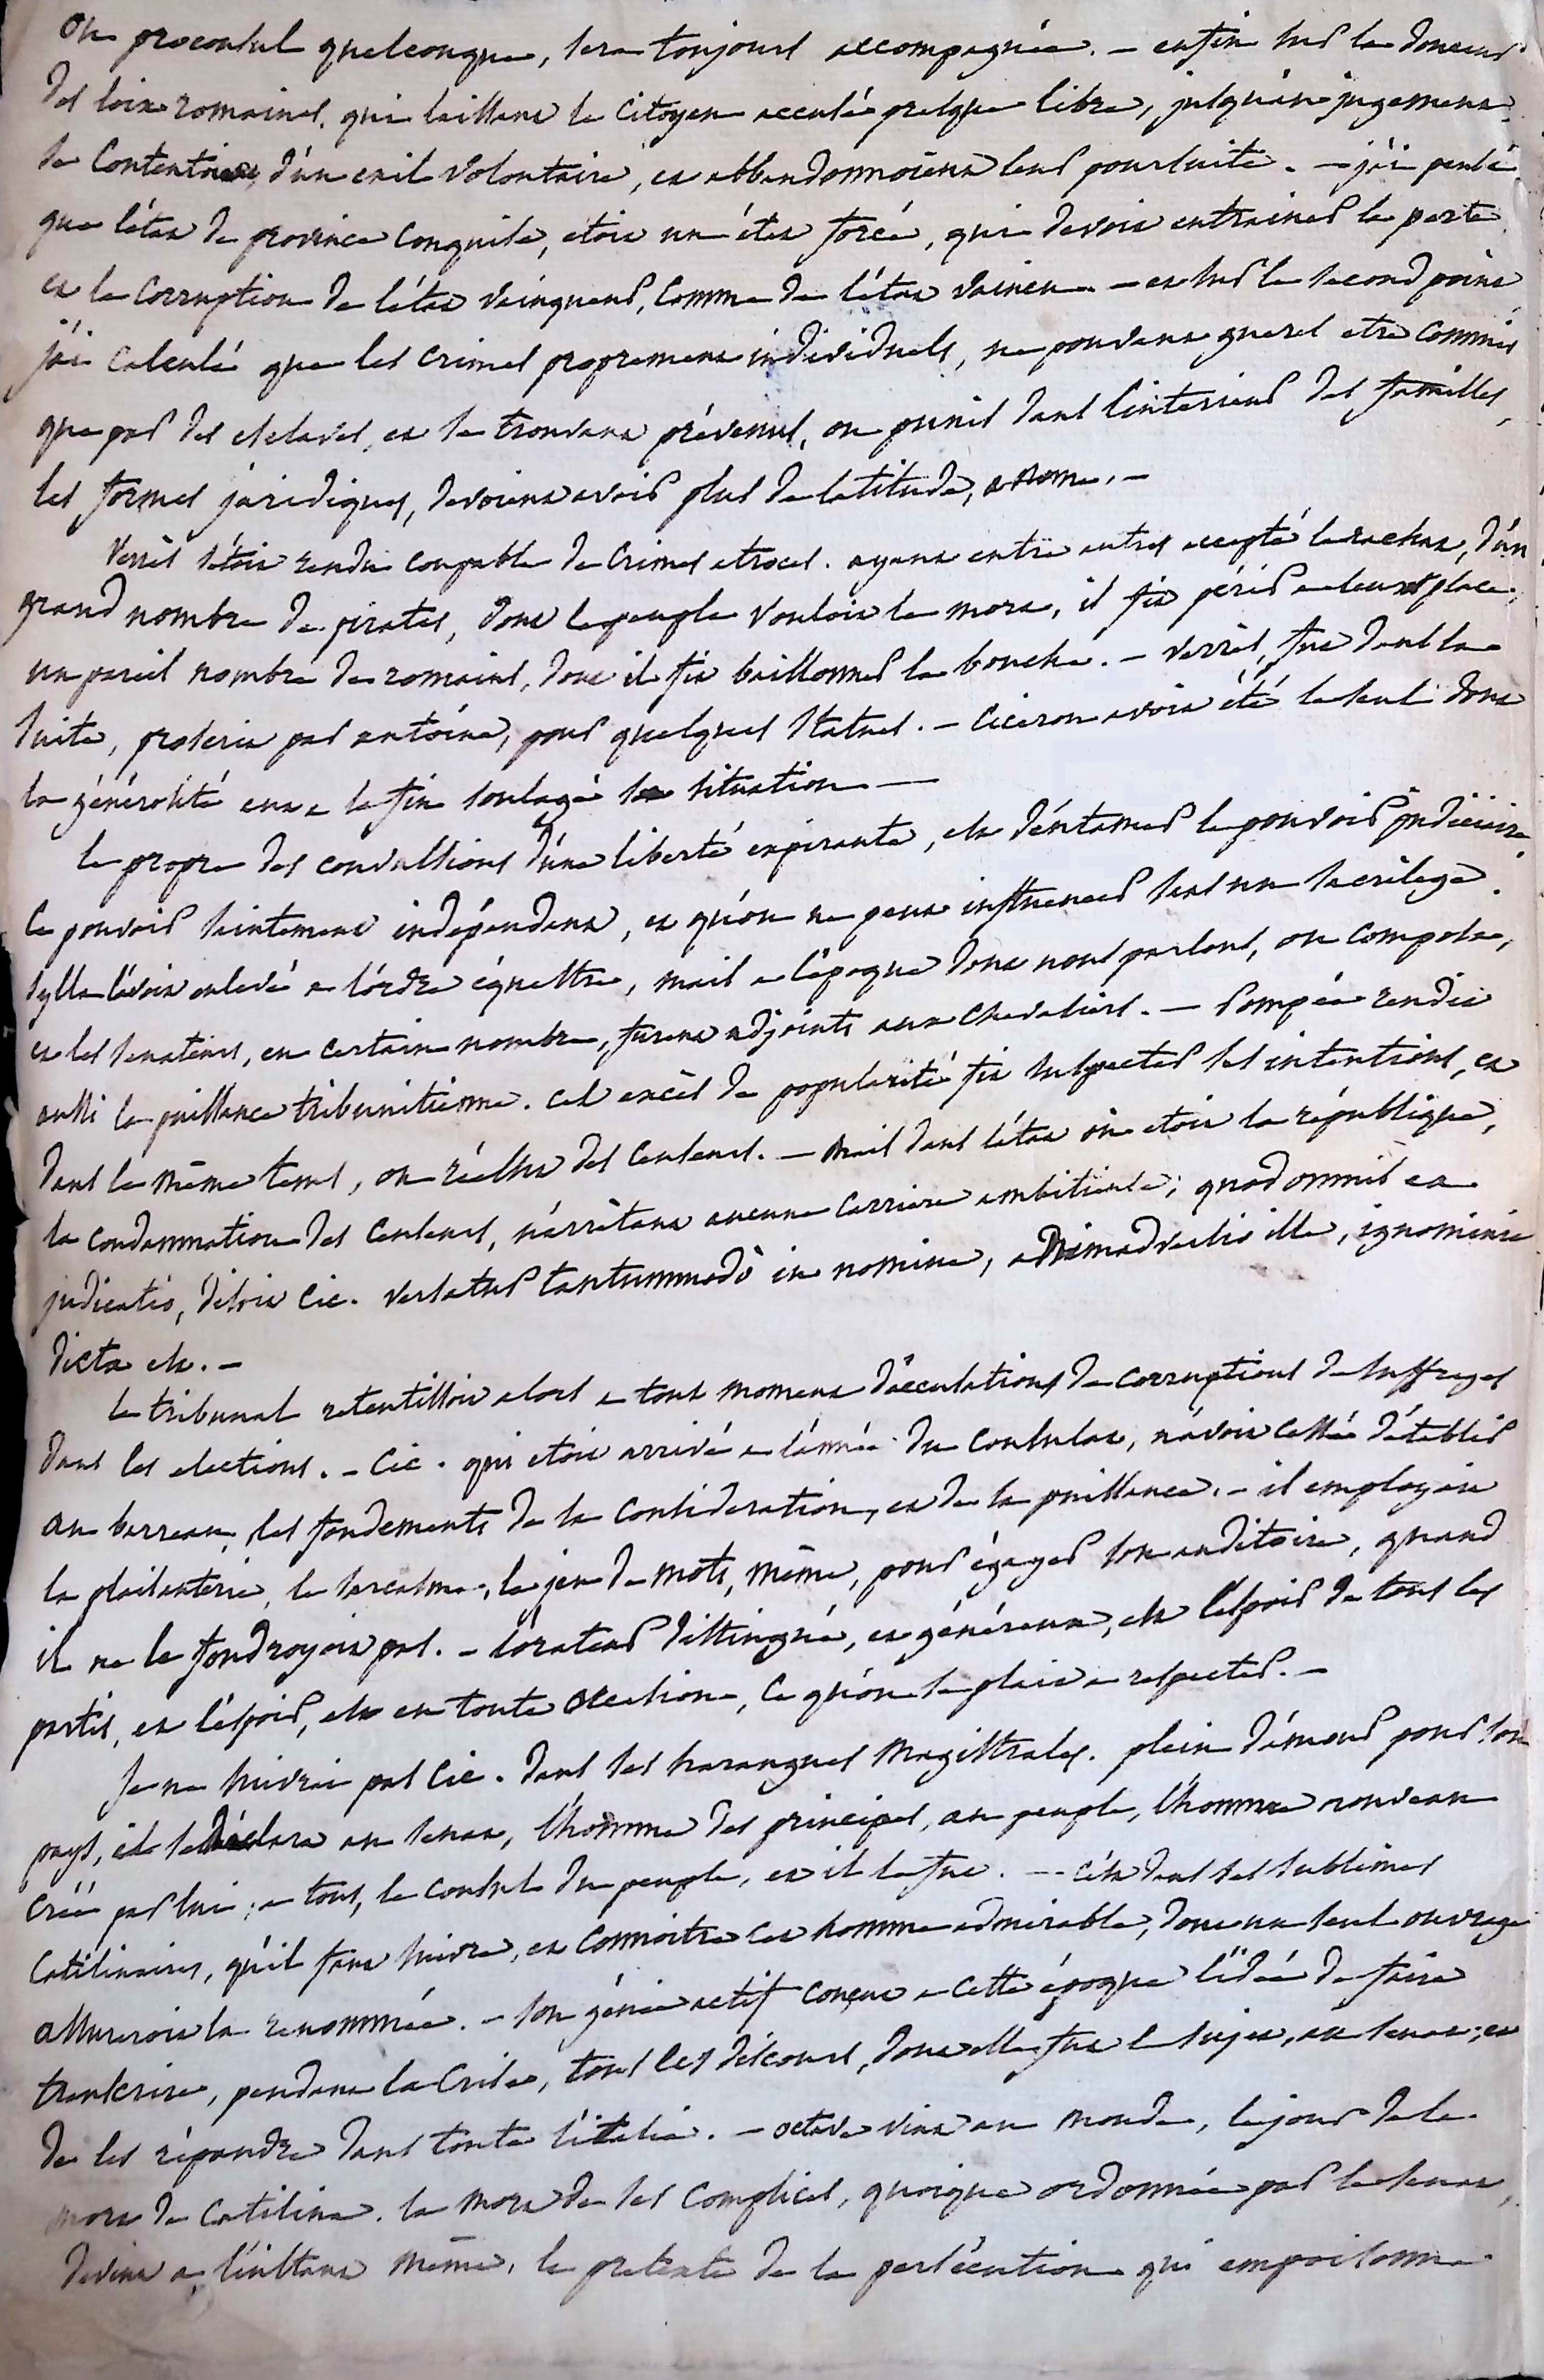 ou proconsul quelconque, sera toujours accompagnée. – enfin sur la douceur
des loix romaines, qui laissant le citoyen accusé presque libre, jusqu'au jugement,
se contentoient d'un exil volontaire, et abbandonnoient leur poursuite. – j'ai pensé
que l'état de province conquise, étoit un état forcé, qui devoit entrainer la perte
et la corruption de l'état vainqueur, comme de l'état vaincu. – et sur le second point
j'ai calculé que les crimes proprement individuels, ne pouvant gueres etre commis
que par des esclaves, et se trouvant prévenus, ou punis dans l'interieur des familles,
les formes juridiques, devoient avoir plus de latitude, a Rome. –
Verrès s'étoit rendu coupable de crimes atroces. ayant entre autres accepté le rachat, d'un
grand nombre de pirates, dont le peuple vouloit la mort, il fit périr a leur place,
un pareil nombre de romains, dont il fit baillonner la bouche. – Verrès, fut dans la
suite, proscrit par antoine, pour quelques statues. – Ciceron avoit été le seul dont
la générosité eut a la fin soulagé sa situation —
le propre des convulsions d'une liberté expirante, est d'entamer le pouvoir judiciaire.
Ce pouvoir saintement indépendant, et qu'on ne peut influencer sans un sacrilege.
Sylla l'avoit enlevé a l'ordre équestre, mais a l'époque dont nous parlons, on composa,
et les senateurs, en certain nombre, furent adjoints aux chevaliers. – Pompée rendit
aussi la puissance tribunitienne. cet excès de popularité fit suspecter ses intentions, et
dans le même tems, on réélut des censeurs. – mais dans l'état où etoit la république,
la condamnation des censeurs, n'arrêtant aucune carriere ambitieuse; quod omnis ea
judicatio, disoit Cic. versatur tantummodò in nomine, animadversio illa, ignominia
dicta est. –
le tribunal retentissoit alors a tout moment d'accusations de corruptions de suffrages
dans les elections. – Cic. qui etoit arrivé a l'année du consulat, n'avoit cessé d'établir
au barreau, les fondements de sa consideration, et de sa puissance. – il employoit
la plaisanterie, le sarcasme, le jeu de mots, même, pour égayer son auditoire, quand
il ne le foudroyoit pas. – l'orateur distingué, et généreux, est l'espoir de tous les
partis, et l'espoir, est en toute occasion, ce qu'on se plait a respecter. –
Je ne suivrai pas Cic. dans ses harangues magistrales. plein d'amour pour son
pays, il se déclara au senat, l'homme des principes, au peuple, l'homme nouveau
créé par lui; a tous, le consul du peuple, et il le fut. – c'est dans ses sublimes
Catilinaires, qu'il faut suivre, et connoitre cet homme admirable, dont un seul ouvrage
assureroit la renommée. – son génie actif conçut a cette époque l'idée de faire
transcrire, pendant la crise, tous les discours, dont elle fut le sujet, au senat; et
de les répandre dans toute l'italie. – octave vint au monde, le jour de la
mort de Catilina. la mort de ses complices, quoique ordonnée par le senat,
devint a l'instant même, le pretexte de la persécution qui empoisonna